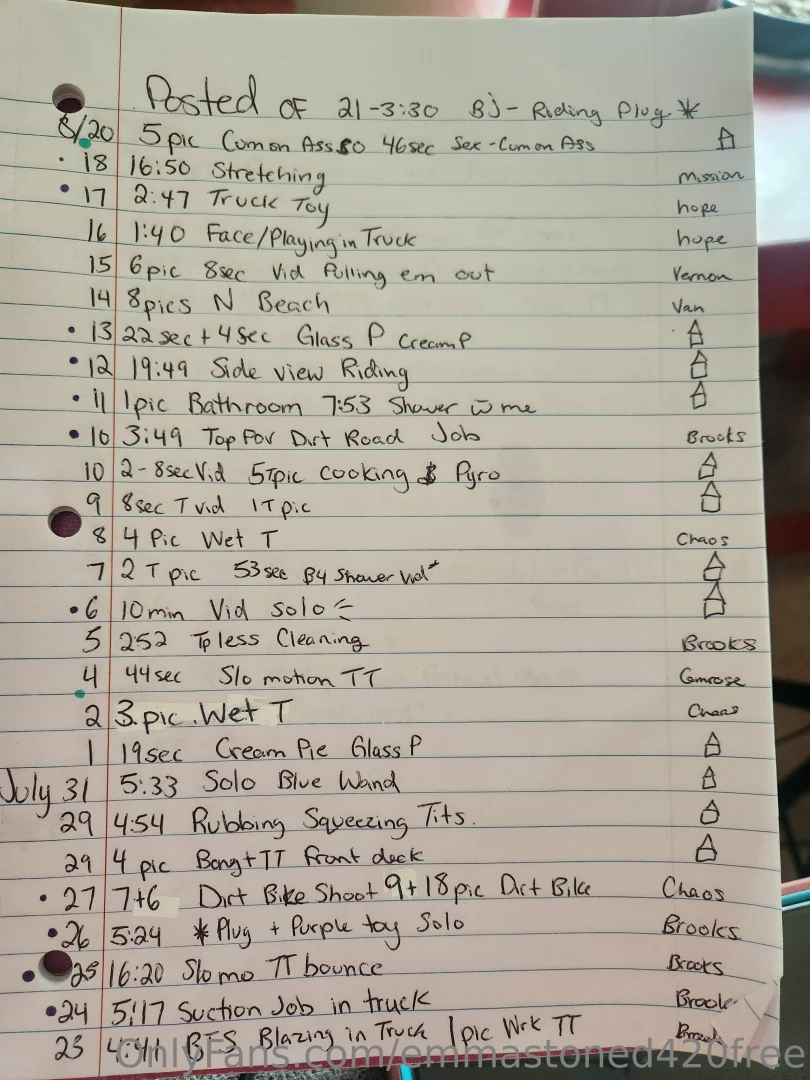 Posted OF 21-3:30 BJ - Riding Plug *
8/20 5 pic Cum on Ass 46sec Sex - Cum on Ass
18 16:50 Stretching Mission
17 2:47 Truck Toy hope
16 1:40 Face/Playing in Truck hope
15 6 pic 8sec Vid Pulling em out Vernon
14 8pics N Beach Van
13 22 sec + 4 Sec Glass P CreamP
12 19:49 Side view Riding
11 1pic Bathroom 7:53 Shower w̄ me
10 3:49 Top Pov Dirt Road Job Brooks
10 2-8sec Vid 5Tpic cooking & Pyro
9 8sec T vid 1T pic
8 4 Pic Wet T Chaos
7 2 T pic 53sec B4 Shower Vid*
6 10min Vid solo
5 252 Tpless Cleaning Brooks
4 44sec Slo motion TT Camrose
2 3.pic.Wet T Chaos
1 19sec Cream Pie Glass P
July 31 5:33 Solo Blue Wand
29 4:54 Rubbing Squeezing Tits.
29 4 pic Bong+TT front deck
27 7+6 Dirt Bike Shoot 9+18pic Dirt Bike Chaos
26 5:24 *Plug + Purple toy Solo Brooks
25 16:20 Slo mo TT bounce Brooks
24 5:17 Suction Job in truck
23 4:41 BTS Blazing in Truck 1pic Wrk TT
OnlyFans.com/emmastoned420free